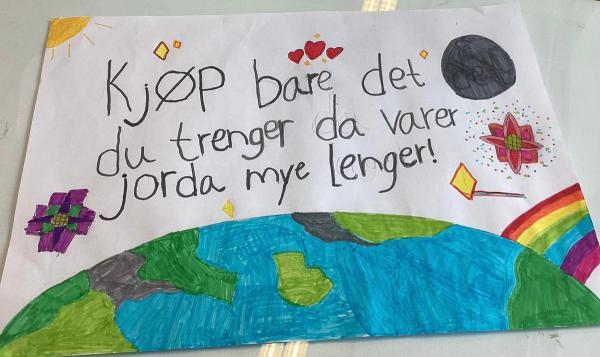 Kjøp bare det
du trenger da varer
jorda mye lenger!